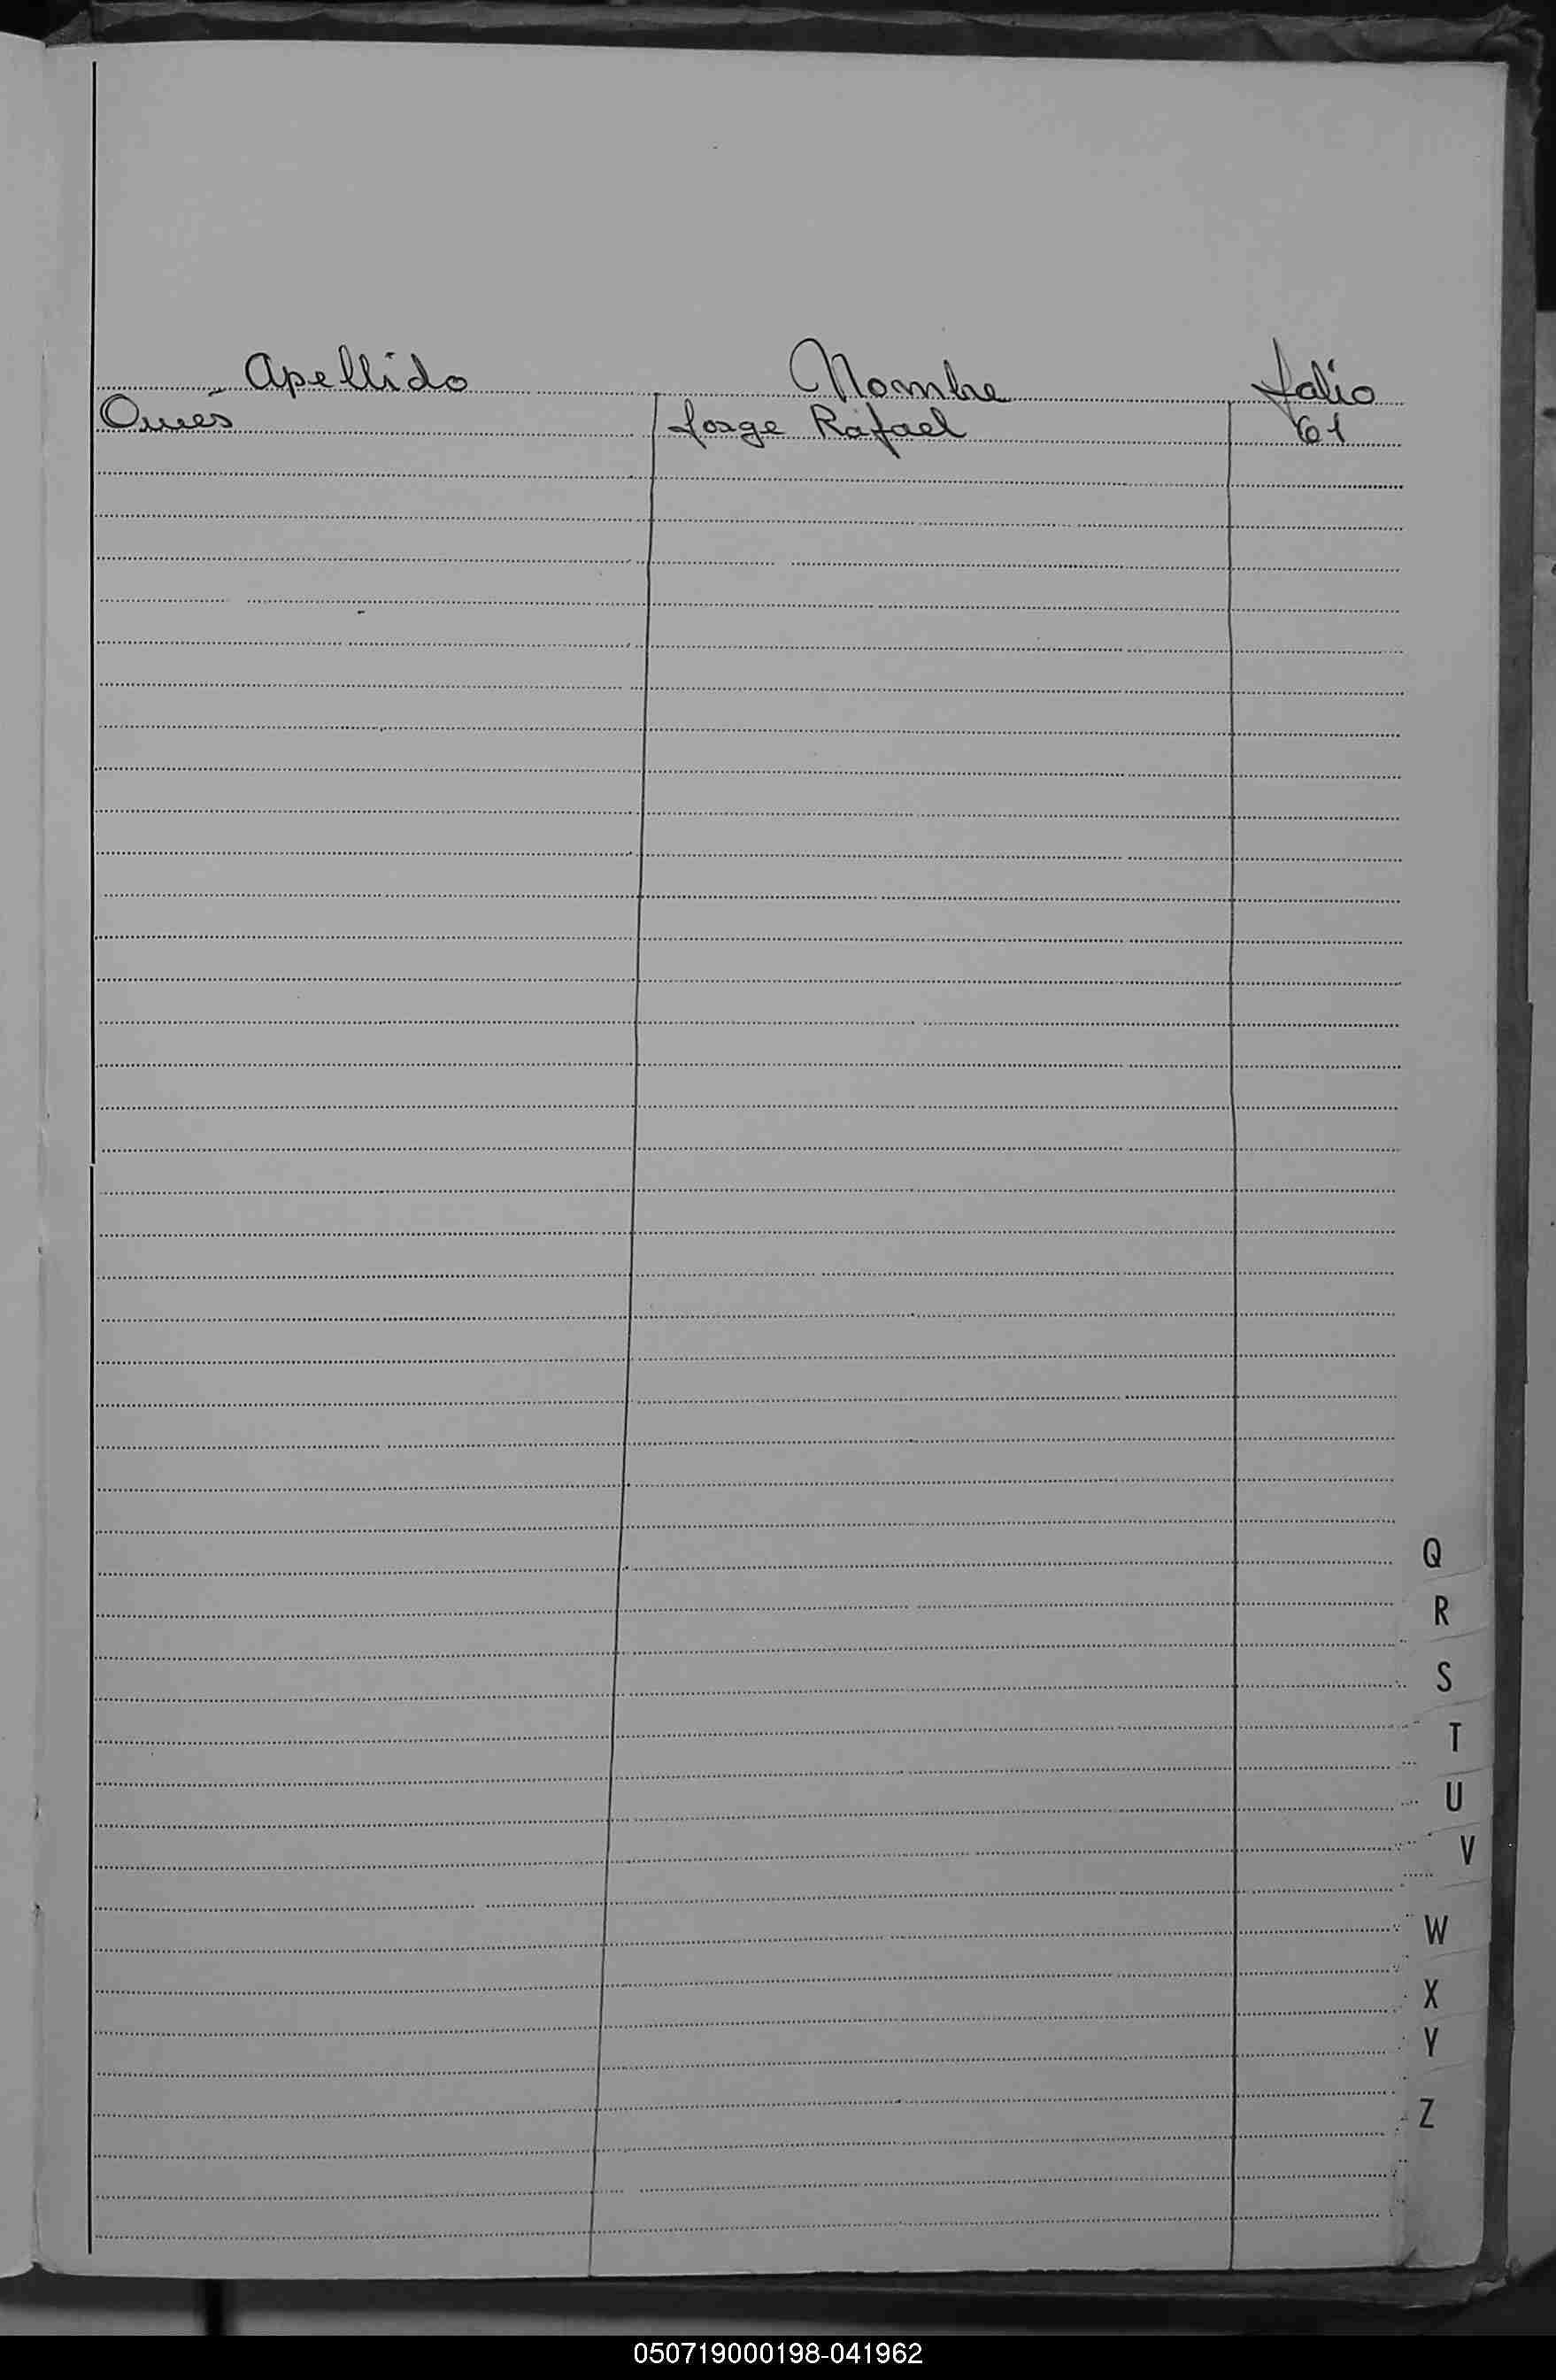 Apellido Nombre folio
Jorge Rafael 61
Q
R
S
T
U
V
W
X
Y
Z
050719000198-041962